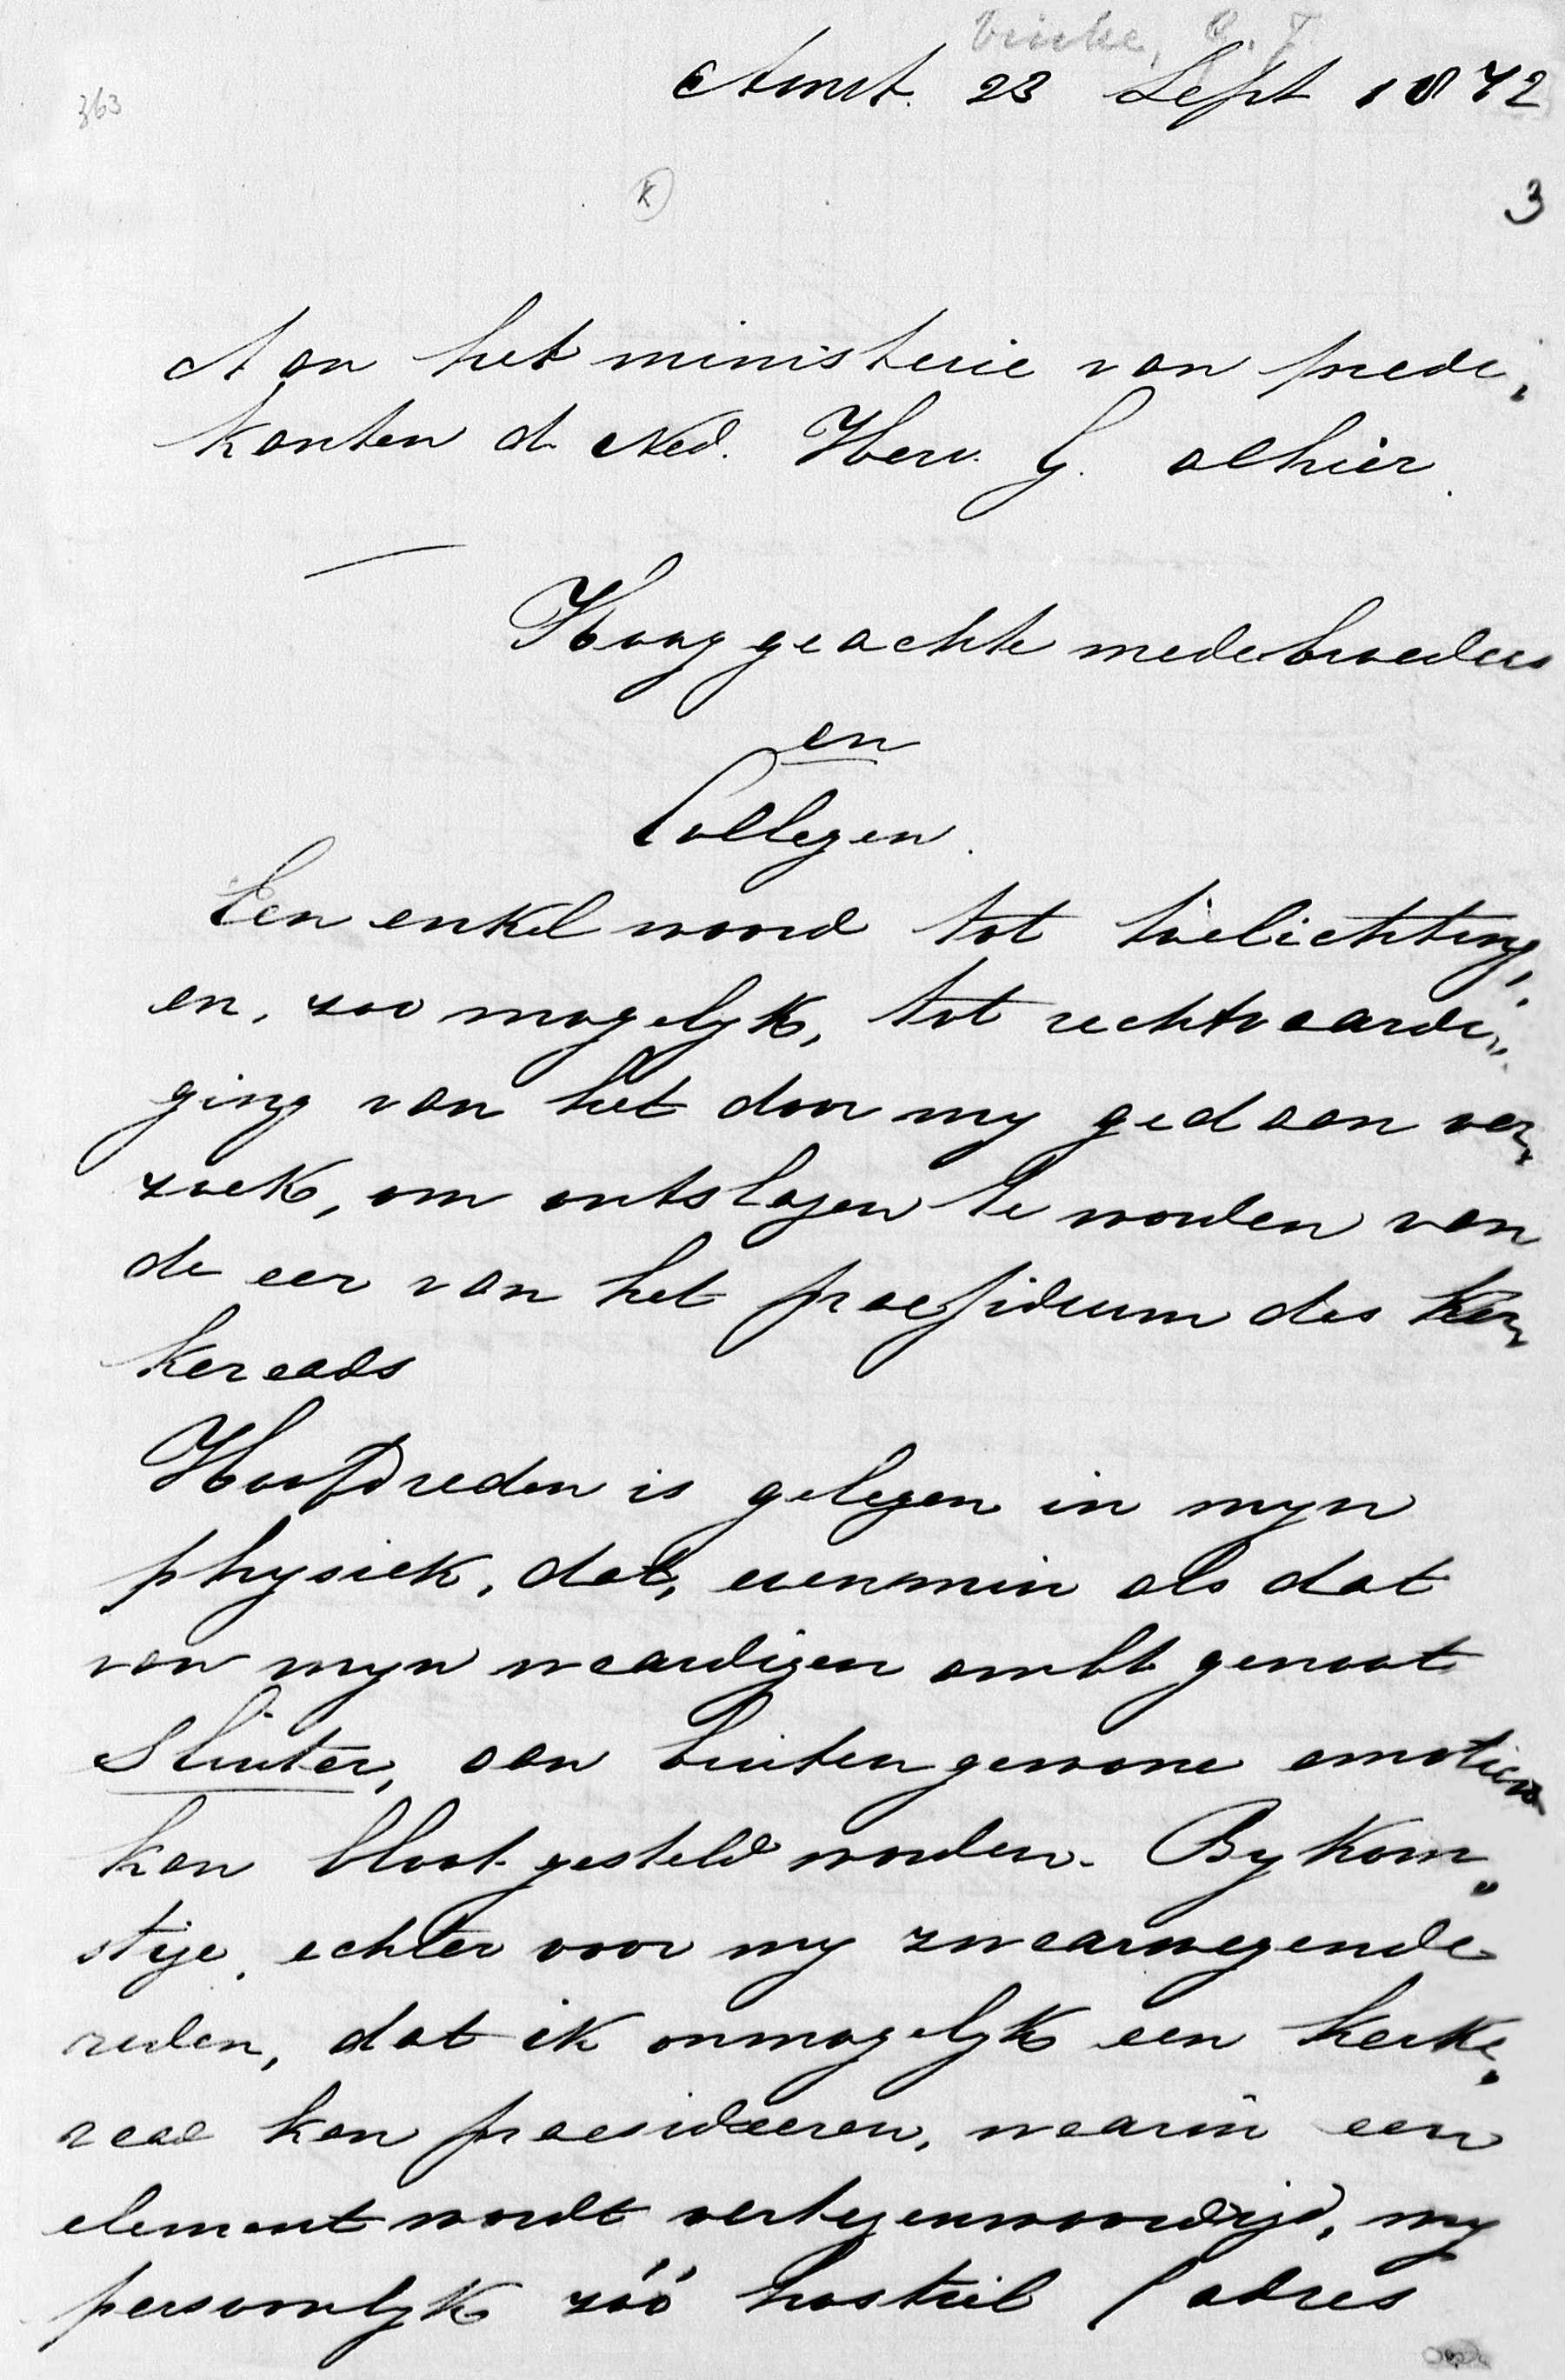 Vinke, G. J.
Amst. 23 Sept 1872
363
X
3
Aan het ministerie van predi„
kanten d. Ned. Herv. G. alhier.
Hooggeachte medebroeders
en
Collegen.
Een enkel woord tot toelichting,
en, zoo mogelyk, tot rechtvaardi„
ging van het door my gedaan ver„
zoek, om ontslagen te worden van
de eer van het praesidium des ker„
keraads
Hoofdreden is gelegen in myn
physiek, dat, evenmin als dat
van myn waardigen ambtgenoot
Sluiter, aan buitengewone emotien
kan blootgesteld worden. Bykom„
stige, echter voor my zwaarwegende
reden, dat ik onmogelyk een kerke„
raad kan praesideeren, waarin een
element wordt vertegenwoordigd, my
persoonlyk zóó hostiel (adres